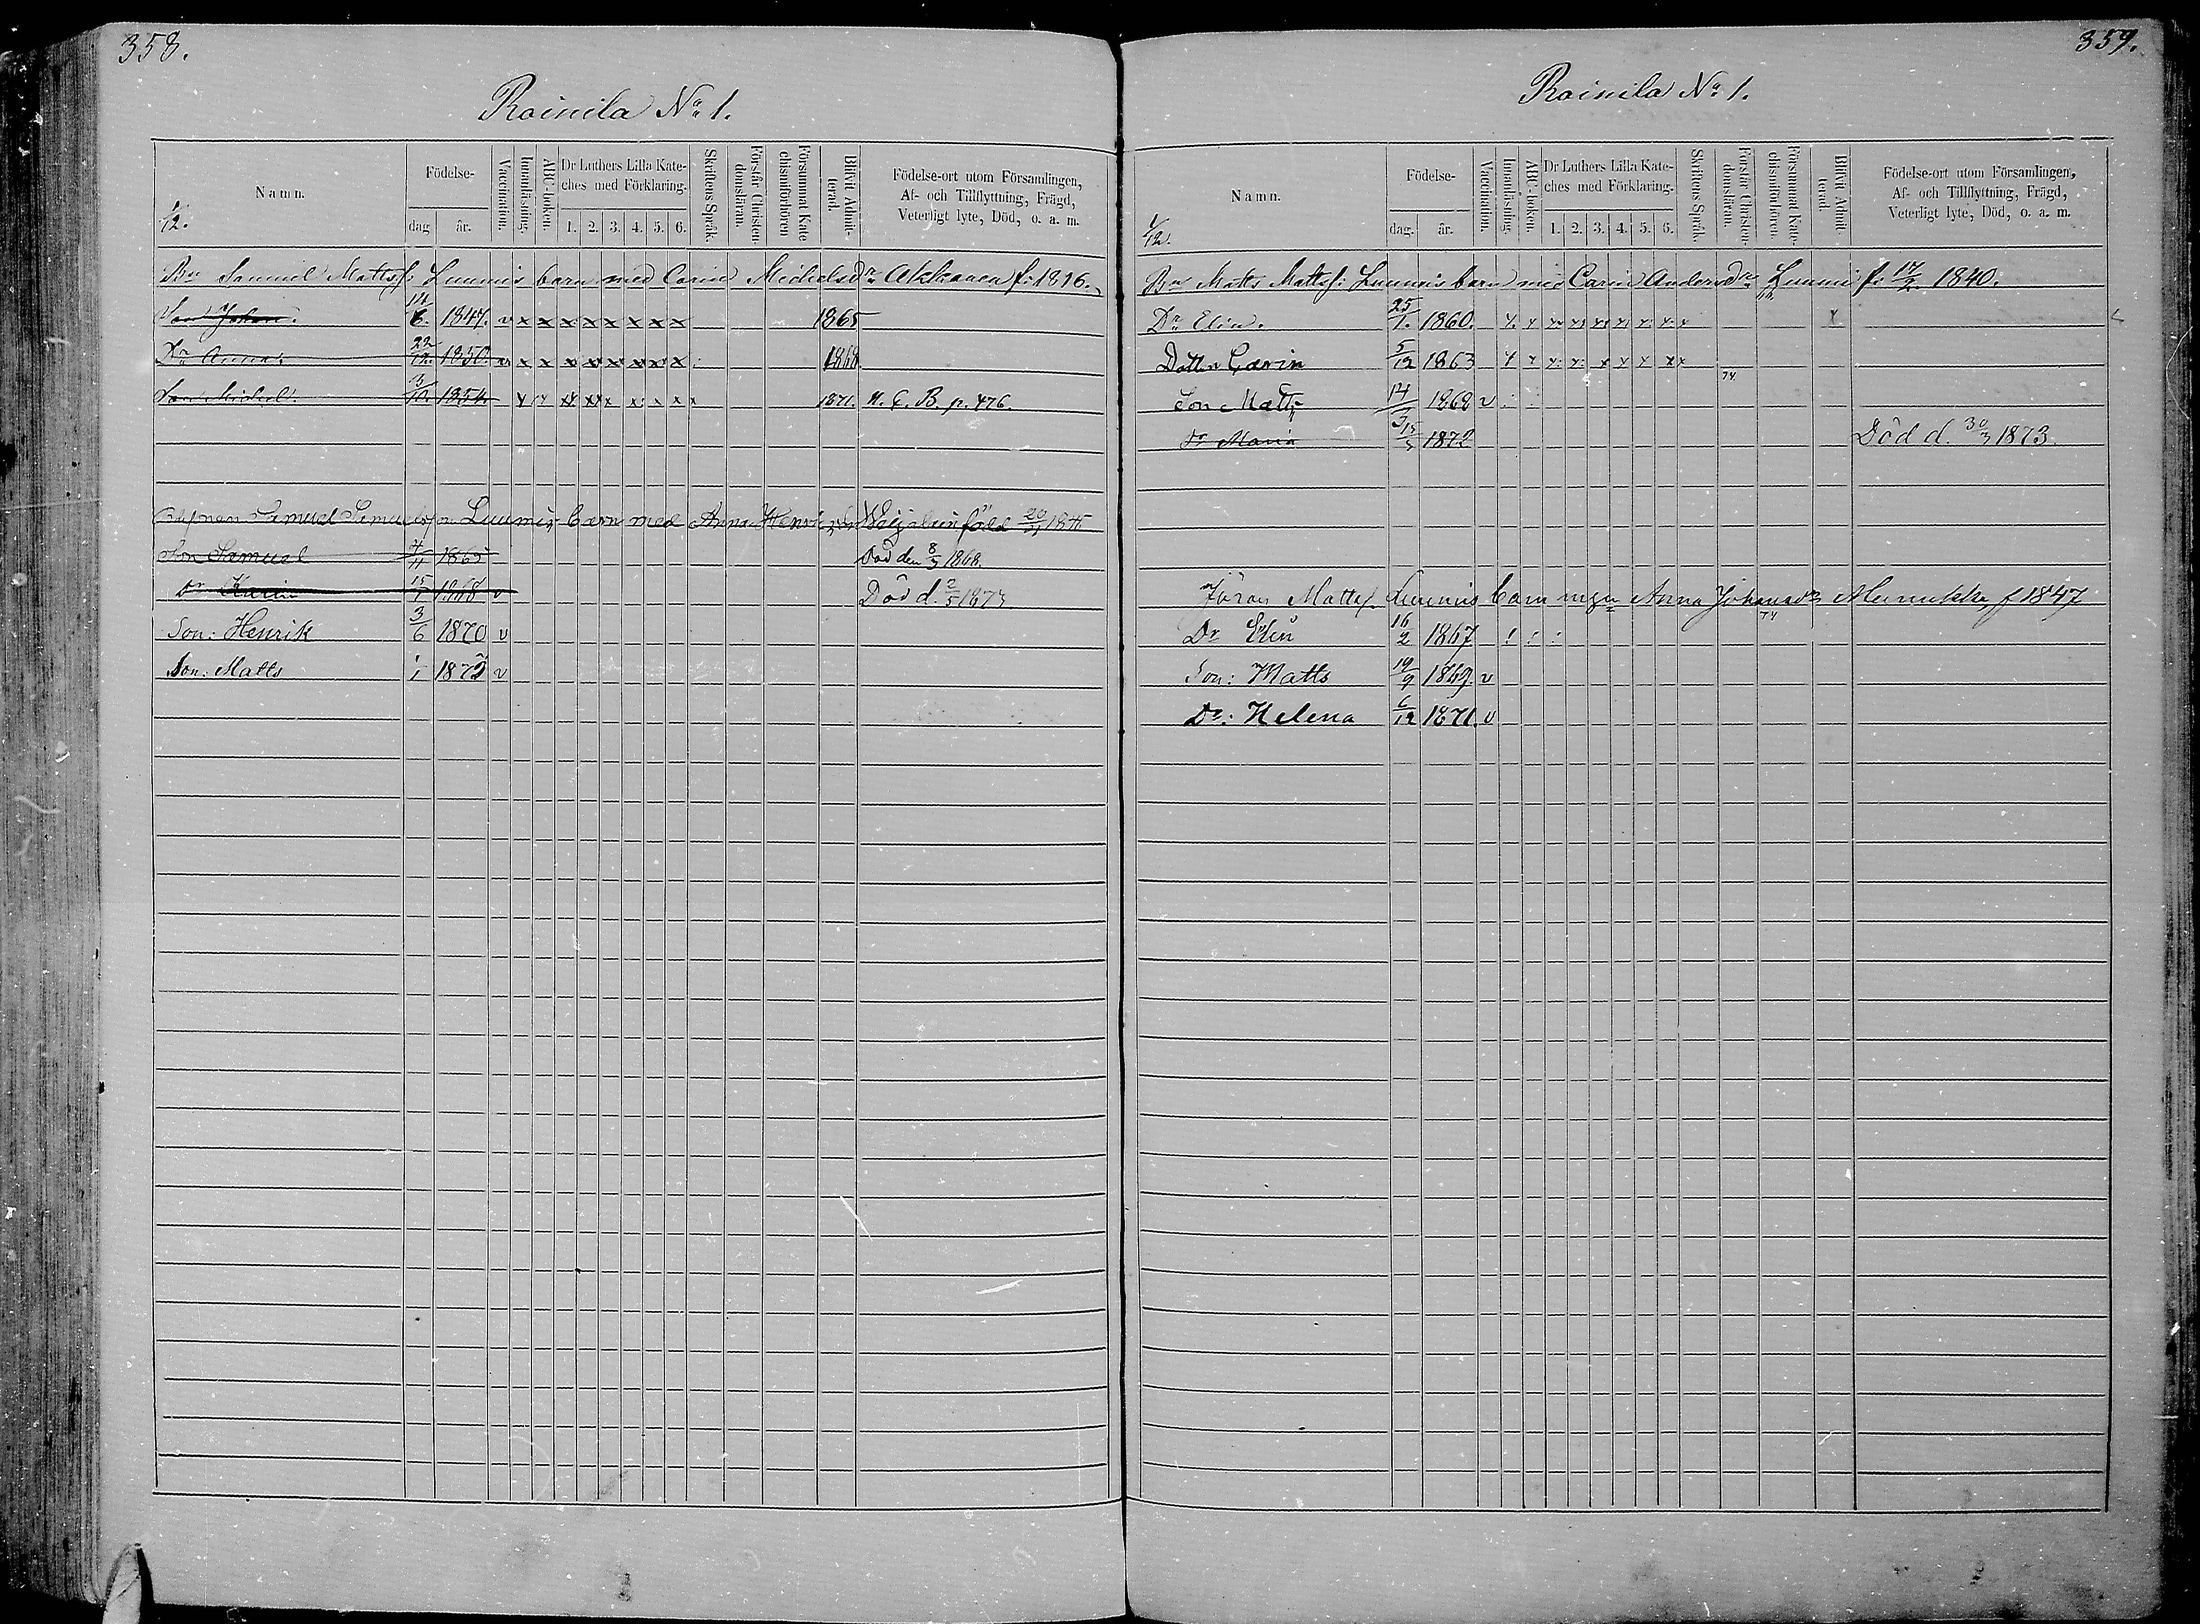 358.
Roinila No 1.
Namn.
1/12.
Födelse-
dag
år.
Vaccination.
Innanläsning.
ABC-boken.
Dr Luthers Lilla Kate-
ches med Förklaring.
1. 2. 3. 4. 5. 6.
Skriftens Språk.
Förstår Christen-
domsläran.
Försummat Kate
chismiförhören
Blifvit Admit-
terad.
Födelse-ort utom Församlingen,
Af- och Tillflyttning, Frägd,
Veterligt lyte, Död, o. a. m.
Bn Samuel Mattsf: Luumis barn med Carin Michelsdr Akkanen f: 1816.
Son Johan. 6. 1847. v x x x x x x x x 1865
Dr Anna. 22/12. 1850. v x x x x x x x x 1868
Son Michel. 3/10. 1854. x x x x x x x x 1871. N. C. B. p. 476.
Samuel Luumis barn med Anna föld 20 184
Son Samuel 4/11 1865 Död den 8/3 1868.
Dr Karin 15 1868 v Död d. 2/5 1873
Son: Henrik 3/6 1870 v
Son: Matts 1/1 1873 v
359.
Roinila No 1.
Namn.
1/12.
Födelse-
dag.
år.
Vaccination.
Innanläsning.
ABC-boken.
Dr Luthers Lilla Kate-
ches med Förklaring.
1. 2. 3. 4. 5. 6.
Skriftens Språk.
Förstår Christen-
domsläran.
Försummat Kate-
chismiförhören.
Blifvit Admit-
terad.
Födelse-ort utom Församlingen,
Af- och Tillflyttning, Frägd,
Veterligt lyte, Död, o. a. m.
Bn Matts Mattsf: Luumis barn med Carin Andersdr Luumi f: 17/2 1840.
Dr Elin. 25/1. 1860. x x x x x x x x x x
Dotter Carin 5/12 1863 x x x x x x x x x
74
Son Matts 14/3 1868 v
Dr Maria 1872 Död d. 30/3 1873.
Jöran Mattsf. Luumis barn Anna Johansdr f 1847
74
Dr Elin 16/2 1867
Son: Matts 19/9 1869. v
Dr: Helena 6/12 1871. v